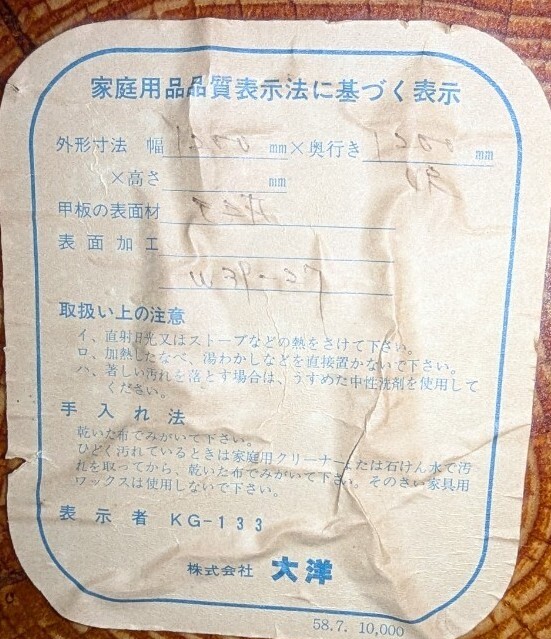 家庭用品品質表示法に基づく表示
外形寸法 幅 mm×奥行き mm
×高さ mm
甲板の表面材
表面加工
取扱い上の注意
イ、直射日光又はストーブなどの熱をさけて下さい。
ロ、加熱したなべ、湯わかしなどを直接置かないで下さい。
ハ、著しい汚れを落とす場合は、うすめた中性洗剤を使用して
ください。
手入れ法
乾いた布でみがいて下さい。
ひどく汚れているときは家庭用クリーナーまたは石けん水で汚
れを取ってから、乾いた布でみがいて下さい。そのさい家具用
ワックスは使用しないで下さい。
表示者 KG-133
株式会社 大洋
58.7. 10,000